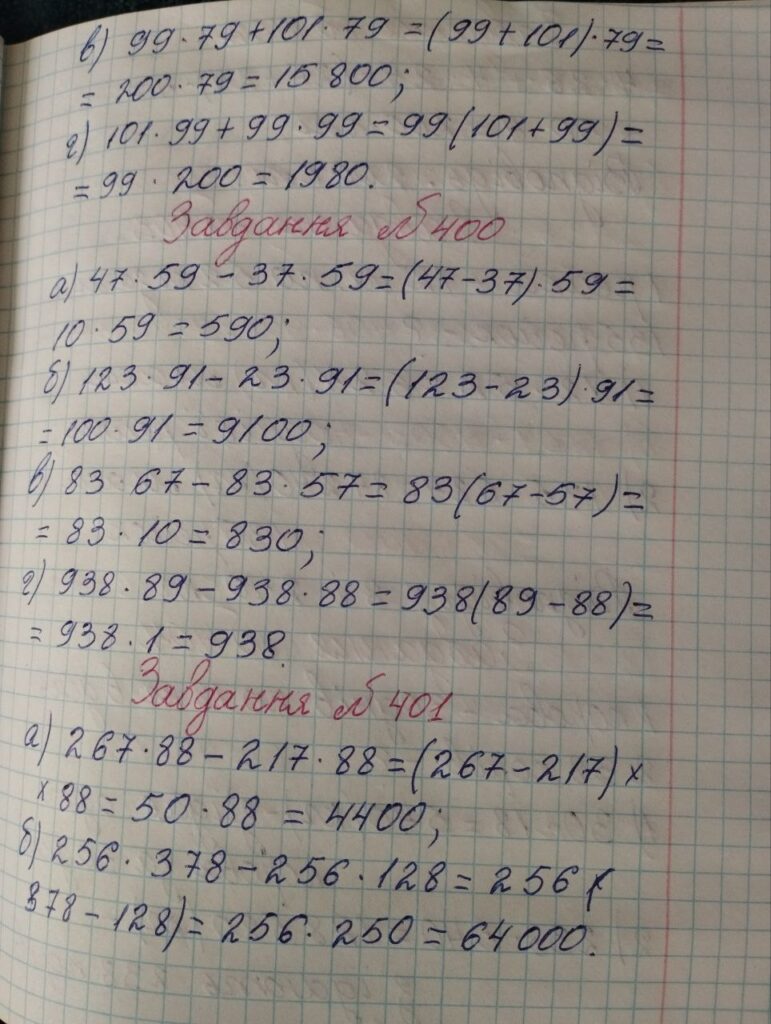 в) 99·79+101·79=(99+101)·79=
=200·79=15800;
г) 101·99+99·99=99(101+99)=
=99·200=1980.
Завдання №400
а) 47·59-37·59=(47-37)·59=
10·59=590;
б) 123·91-23·91=(123-23)·91=
=100·91=9100;
в) 83·67-83·57=83(67-57)=
=83·10=830;
г) 938·89-938·88=938(89-88)=
=938·1=938.
Завдання №401
а) 267·88-217·88=(267-217)×
×88=50·88=4400;
б) 256·378-256·128=256(
378-128)=256·250=64000.